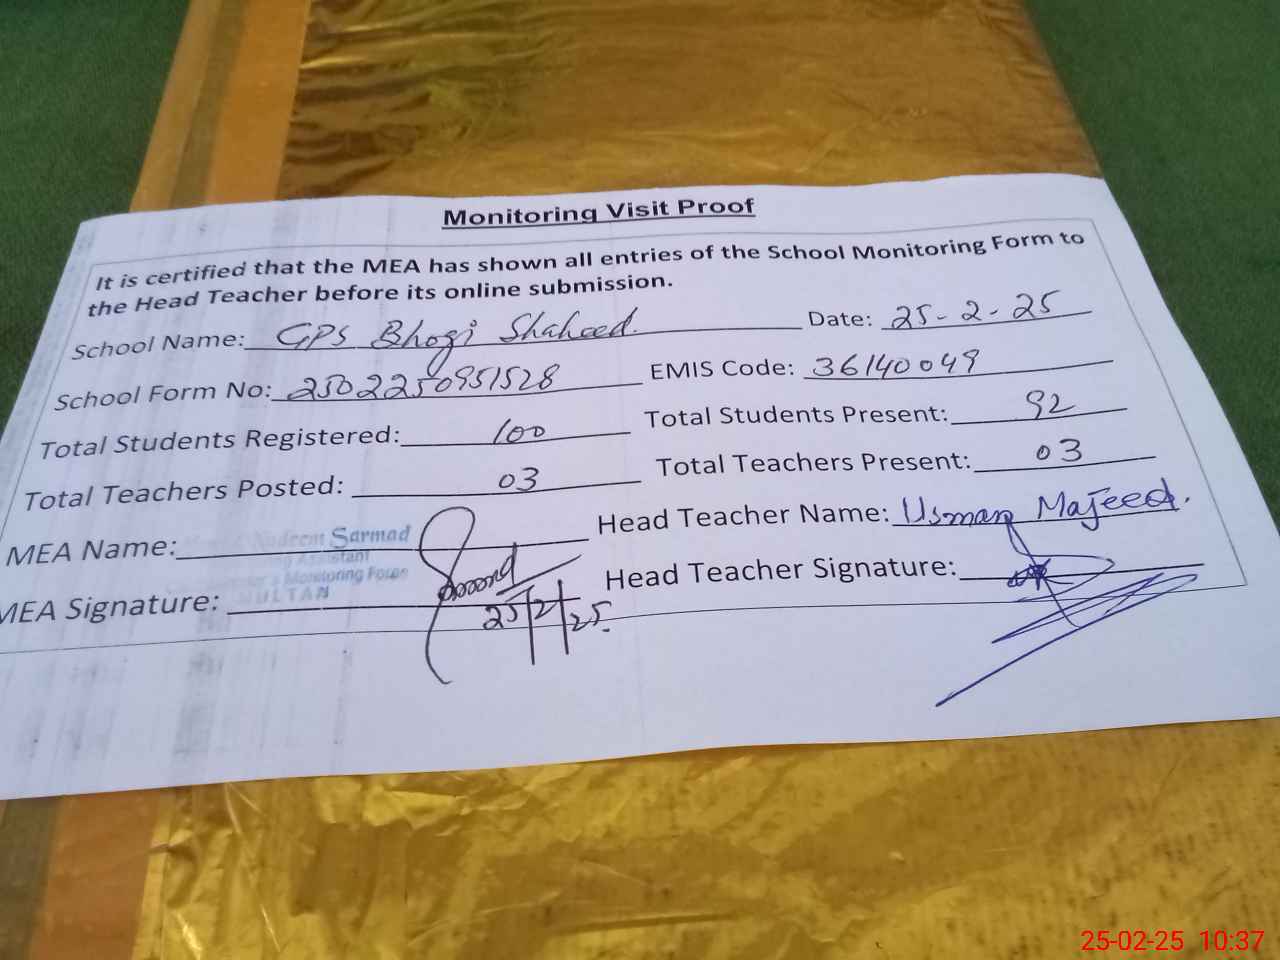 Monitoring Visit Proof
It is certified that the MEA has shown all entries of the School Monitoring Form to
the Head Teacher before its online submission.
School Name: GPS Bhogi Shaheed. Date: 25-2-25
School Form No: 2502250951528 EMIS Code: 36140049
Total Students Registered: 100 Total Students Present: 92
Total Teachers Posted: 03 Total Teachers Present: 03
MEA Name: Nadeem Sarmad Head Teacher Name: Usman Majeed.
Assistant
Monitoring Force
MULTAN
MEA Signature: 25/2/25. Head Teacher Signature:
25-02-25 10:37